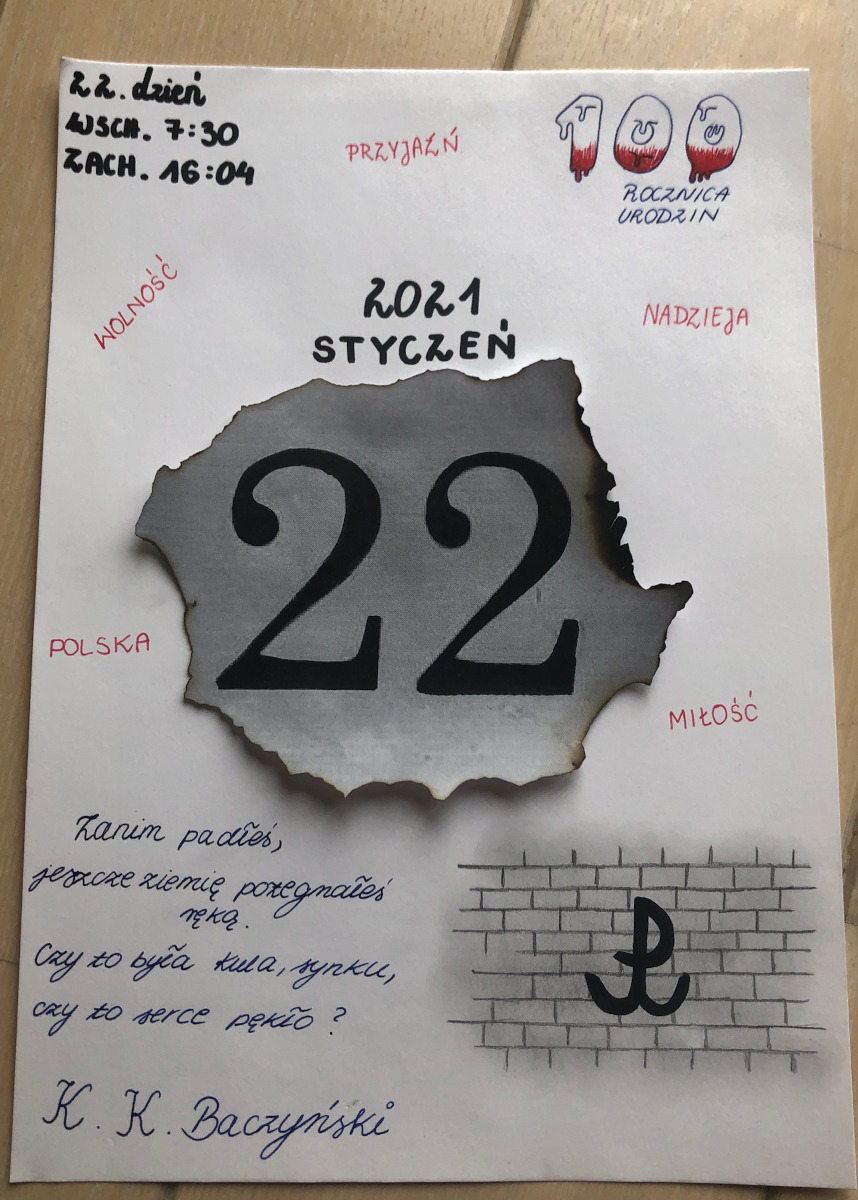 22. dzień
WSCH. 7:30
ZACH. 16:04
PRZYJAŹŃ
100
ROCZNICA
URODZIN
WOLNOŚĆ
2021
STYCZEŃ
NADZIEJA
22
POLSKA
MIŁOŚĆ
Zanim padłeś,
jeszcze ziemię pożegnałeś
ręką.
Czy to była kula, synku,
czy to serce pękło?
K. K. Baczyński